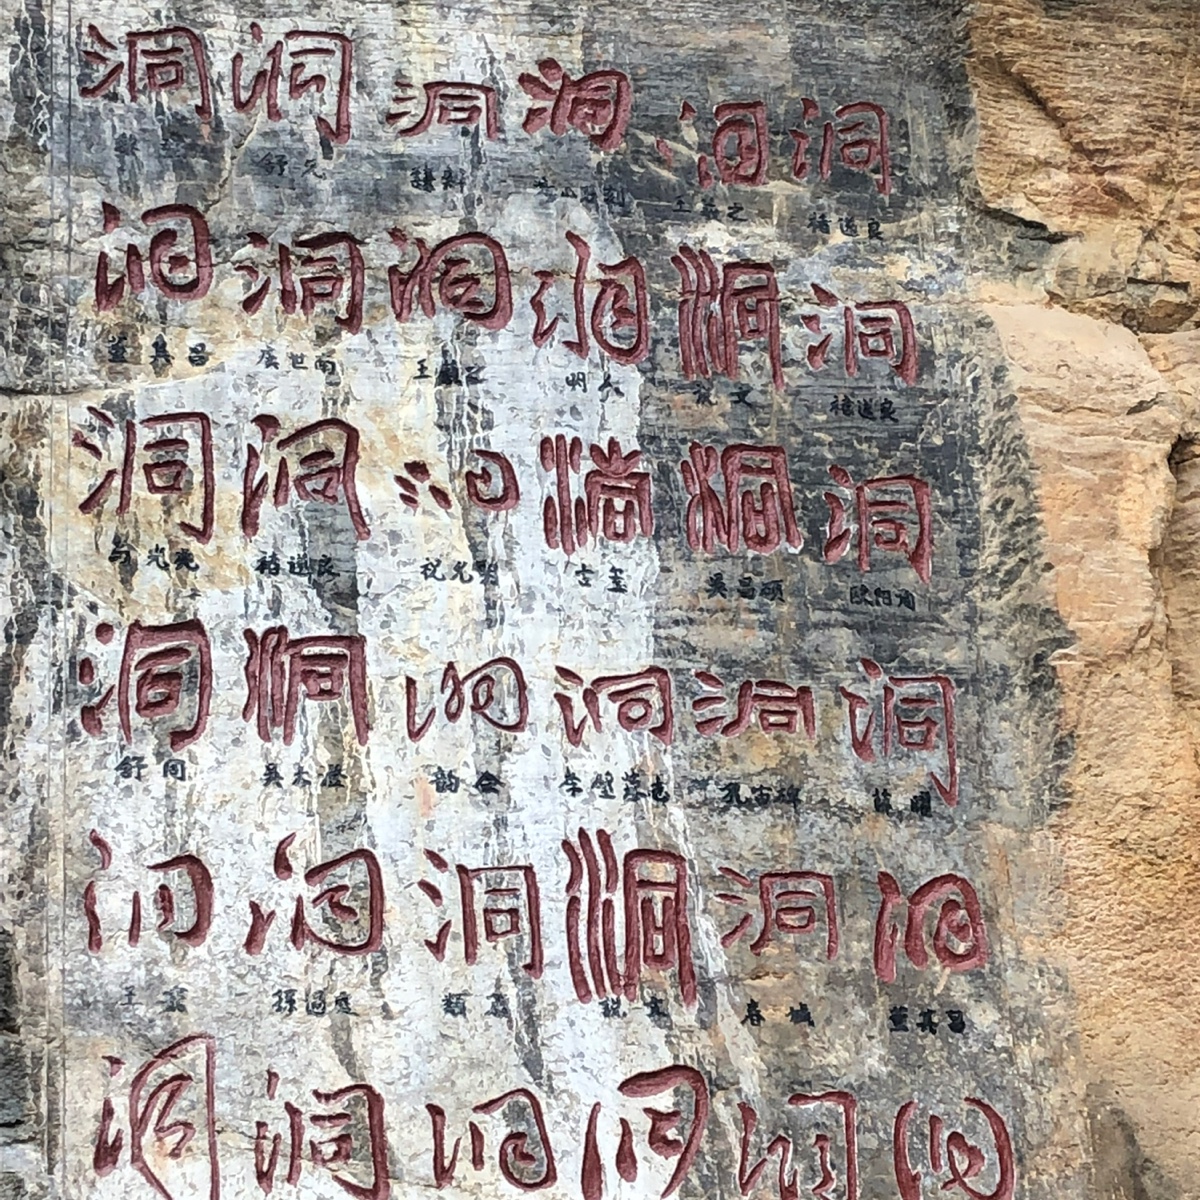 洞 洞 洞 洞 洞 洞
舒元 王羲之 褚遂良
洞 洞 洞 洞 洞 洞
董其昌 虞世南 王羲之 说文 褚遂良
洞 洞 洞 洞 洞 洞
褚遂良 祝允明 古玺 吴昌硕 欧阳询
洞 洞 洞 洞 洞 洞
舒同 吴大澂 韵会 孔宙碑
洞 洞 洞 洞 洞 洞
孙过庭 说文 春城 董其昌
洞 洞 洞 洞 洞 洞